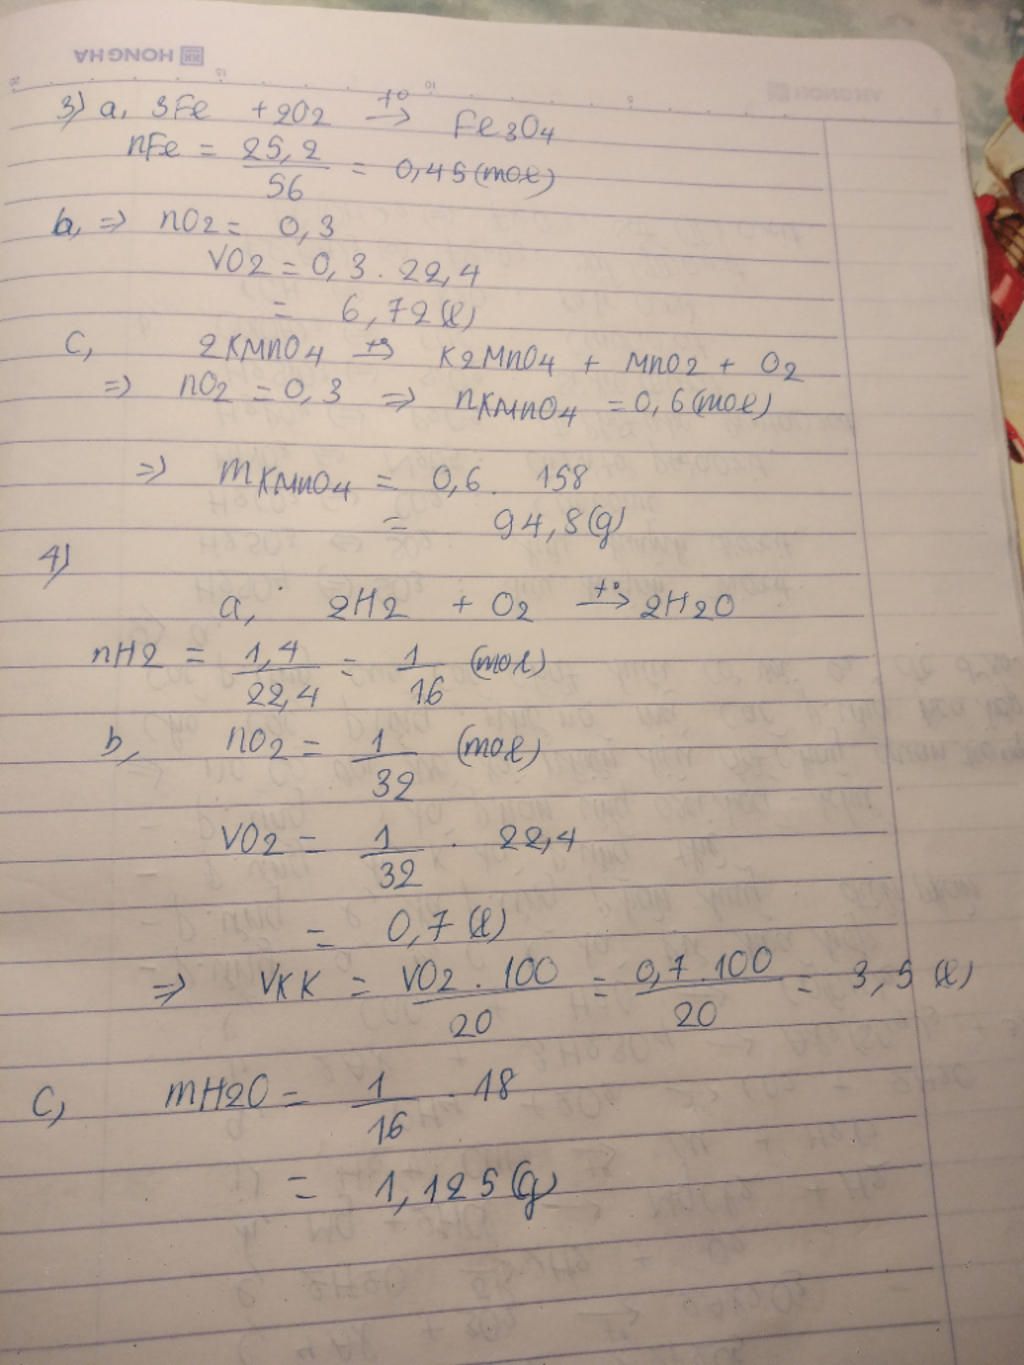 HONG HA
3) a, 3Fe + 2O2 →(t°) Fe3O4
nFe = 25,2/56 = 0,45 (mol)
b, => nO2 = 0,3
VO2 = 0,3 . 22,4
= 6,72 (l)
c, 2KMnO4 →(t°) K2MnO4 + MnO2 + O2
=> nO2 = 0,3 => nKMnO4 = 0,6 (mol)
=> mKMnO4 = 0,6 . 158
= 94,8 (g)
4)
a, 2H2 + O2 →(t°) 2H2O
nH2 = 1,4/22,4 = 1/16 (mol)
b, nO2 = 1/32 (mol)
VO2 = 1/32 . 22,4
= 0,7 (l)
=> VKK = VO2 . 100/20 = 0,7 . 100/20 = 3,5 (l)
c, mH2O = 1/16 . 18
= 1,125 (g)